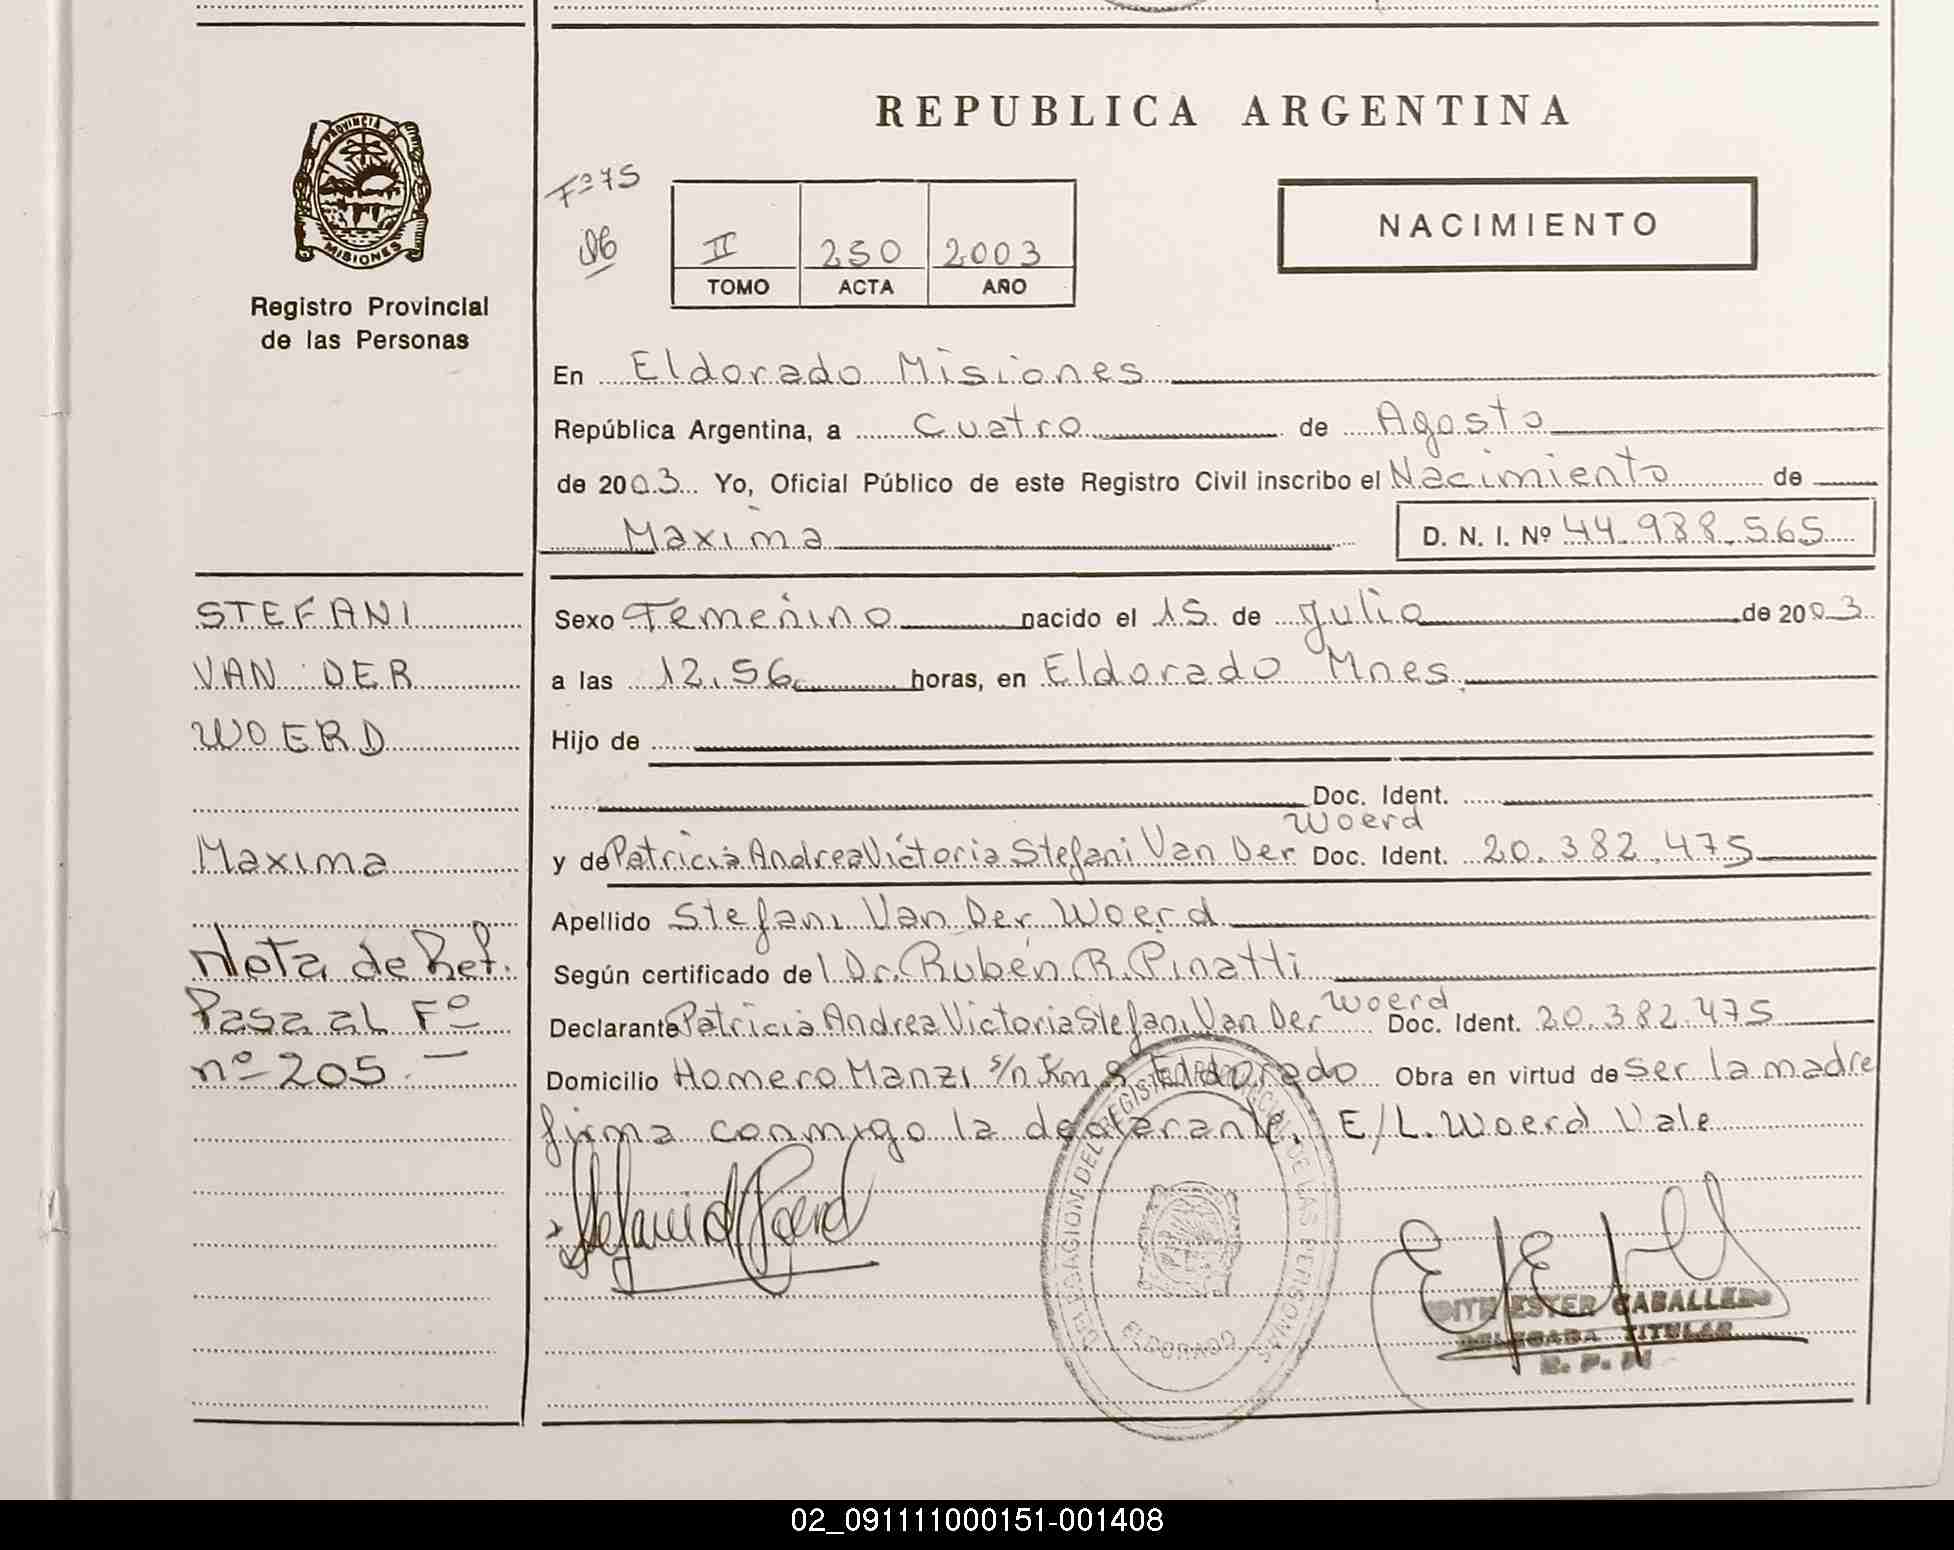 REPUBLICA ARGENTINA
PROVINCIA DE
MISIONES
Registro Provincial
de las Personas
Fº 75
II 250 2003
TOMO ACTA AÑO
NACIMIENTO
En Eldorado Misiones
República Argentina, a Cuatro de Agosto
de 2003. Yo, Oficial Público de este Registro Civil inscribo el Nacimiento de
Maxima D. N. I. Nº 44.988.565
STEFANI
VAN DER
WOERD
Maxima
Nota de Ref.
Pasa al Fº
nº 205.—
Sexo Femenino nacido el 15 de Julio de 2003
a las 12.56 horas, en Eldorado Mnes.
Hijo de
Doc. Ident.
Woerd
y de Patricia Andrea Victoria Stefani Van Der Doc. Ident. 20.382.475
Apellido Stefani Van Der Woerd
Según certificado del Dr. Rubén R. Pinatti
Woerd
Declarante Patricia Andrea Victoria Stefani Van Der Doc. Ident. 20.382.475
Domicilio Homero Manzi s/n Km 8 Eldorado Obra en virtud de ser la madre
firma conmigo la declarante. E/L. Woerd Vale
DELEGACION DEL REGISTRO PROVINCIAL DE LAS PERSONAS
ELDORADO
ESTER CABALLERO
DELEGADA TITULAR
02_091111000151-001408